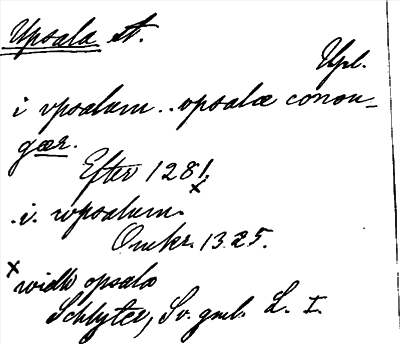 Upsala st.
Upl.
i vpsalum .. opsalæ conon-
gær.
Efter 1281.
x
.i. wpsalum.
Omkr. 1325.
x widh opsala
Schlyter, Sv. gml. L. I.